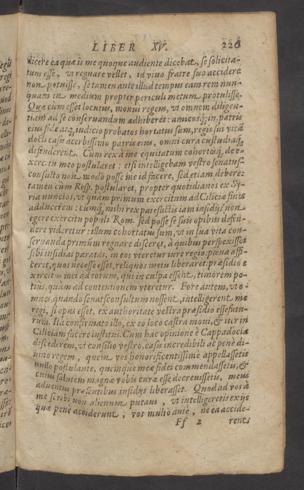 LIBER XV. 226
dicere ea quæ is me quoque audiente dicebat, se solicita-
tum esse, vt regnare vellet, id viuo fratre suo accidere
non potuisse, se tamen ante illud tempus eam rem nun-
quam in medium propter periculi metum protulisse.
Quæ cùm esset locutus, monui regem, vt omnem diligen-
tiam ad se conseruandum adhiberet: amicosq́; in patris
eius fide atq; iudicio probatos hortatus sum, regis sui vitã
docti casu acerbissimo patris eius, omni cura custodiaq́;
defenderent. Cùm rex à me equitatum cohortesq́; de e-
xercitu meo postularet: etsi intelligebam vestro senatus-
consulto non modò posse me id facere, sed etiam debere:
tamen cùm Resp. postularet, propter quotidianos ex Sy-
ria nuncios, vt quàm primùm exercitum ad Ciliciæ fines
adducerem: cùmq́; mihi rex patefactis iam insidijs non
egere exercitu populi Rom. sed posse se suis opibus defen-
dere videretur: illum cohortatus sum, vt in sua vita con-
seruanda primùm regnare disceret, à quibus perspexisset
sibi insidias paratas, in eos vteretur iure regio: pœna affi-
ceret, quos necesse esset, reliquos metu liberaret: præsidio e-
xercitus mei ad eorum, qui in culpa essent, timorem po-
tius, quàm ad contentionem vteretur. Fore autem, vt o-
mnes, quando senatusconsultum nossent, intelligerent me
regi, si opus esset, ex authoritate vestra præsidio esse futu-
rum. Ita confirmato illo, ex eo loco castra moui, & iter in
Ciliciam facere institui. Cùm hac opinione è Cappadocia
discederem, vt consilio vestro, casu incredibili ac penè di-
uino regem, quem vos honorificentissimè appellassetis
nullo postulante, quemque meæ fidei commendassetis, &
cuius salutem magnæ vobis curæ esse decreuissetis, meus
aduentus præsentibus insidijs liberasset. Quod ad vos à
me scribi non alienum putaui, vt intelligeretis ex ijs
quæ penè acciderunt, vos multò antè, ne ea accide-
Ff 2 rent